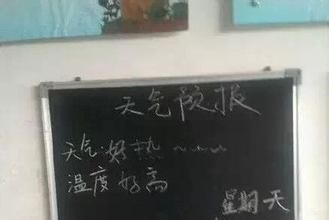 天气预报
天气:好热~~~
温度好高
星期天